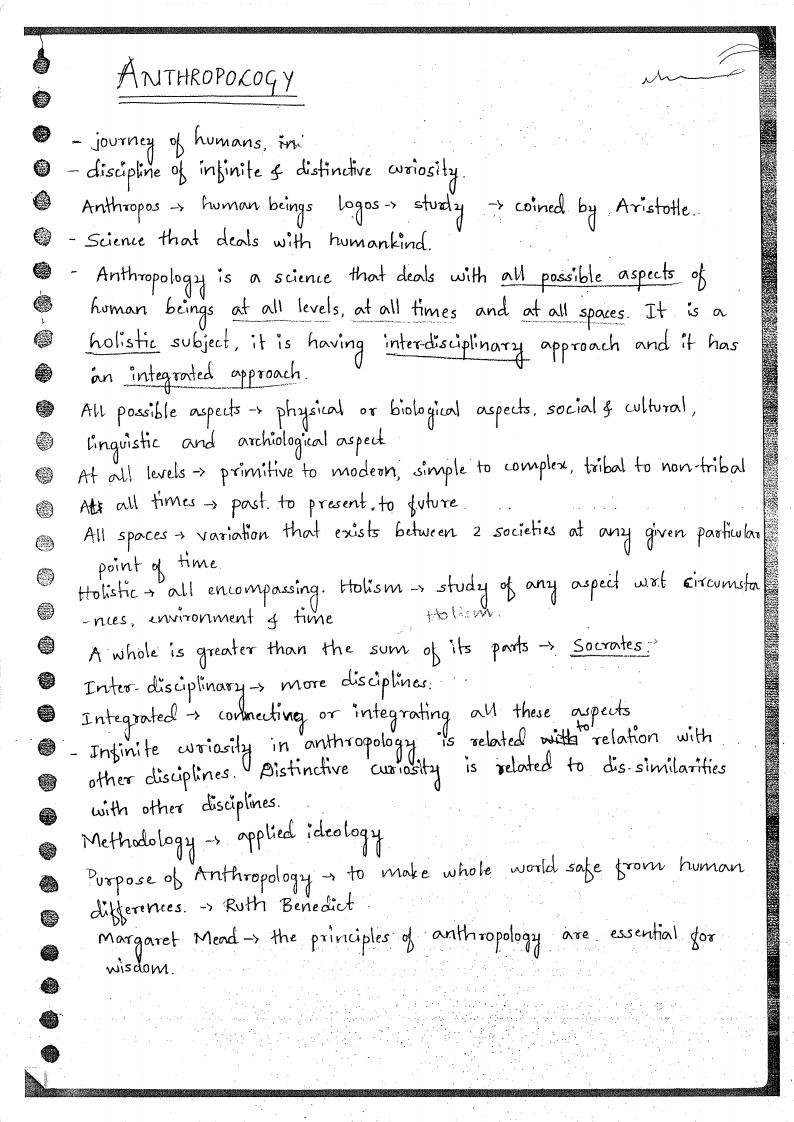 ANTHROPOLOGY
- journey of humans, in
- discipline of infinite & distinctive curiosity.
Anthropos → human beings logos → study → coined by Aristotle.
- Science that deals with humankind.
- Anthropology is a science that deals with all possible aspects of
human beings at all levels, at all times and at all spaces. It is a
holistic subject, it is having inter-disciplinary approach and it has
an integrated approach.
All possible aspects → physical or biological aspects, social & cultural,
linguistic and archiological aspect
At all levels → primitive to modern, simple to complex, tribal to non-tribal
At all times → past to present, to future
All spaces → variation that exists between 2 societies at any given particular
point of time.
Holistic → all encompassing. Holism → study of any aspect wrt circumsta
-nces, environment & time Holism.
A whole is greater than the sum of its parts → Socrates.
Inter-disciplinary → more disciplines.
Integrated → connecting or integrating all these aspects
- Infinite curiosity in anthropology is related to relation with
other disciplines. Distinctive curiosity is related to dis-similarities
with other disciplines.
Methodology → applied ideology
Purpose of Anthropology → to make whole world safe from human
differences. → Ruth Benedict
Margaret Mead → the principles of anthropology are essential for
wisdom.